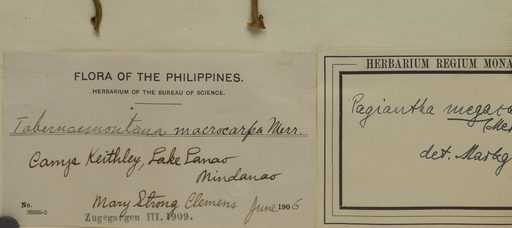 FLORA OF THE PHILIPPINES.
HERBARIUM OF THE BUREAU OF SCIENCE.
Tabernaemontana macrocarpa Merr.
Camp Keithley, Lake Lanao
Mindanao
No.
Mary Strong Clemens June 1906
Zugegangen III. 1909.
HERBARIUM REGIUM MONA
Pagiantha megaca
(Mer
det. Markg